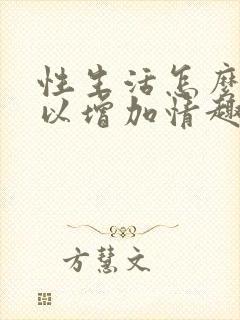 性生活怎麽
以增加情趣
方慧文